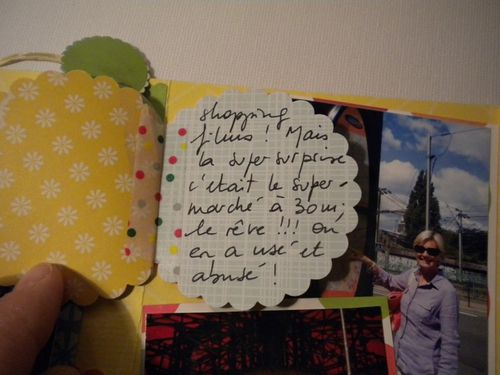 shopping
films ! Mais
la super surprise
c'était le super-
marché à 30m;
le rêve !!! On
en a usé et
abusé !